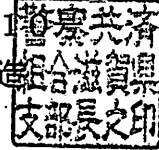 警察共済
組合滋賀県
支部長之印